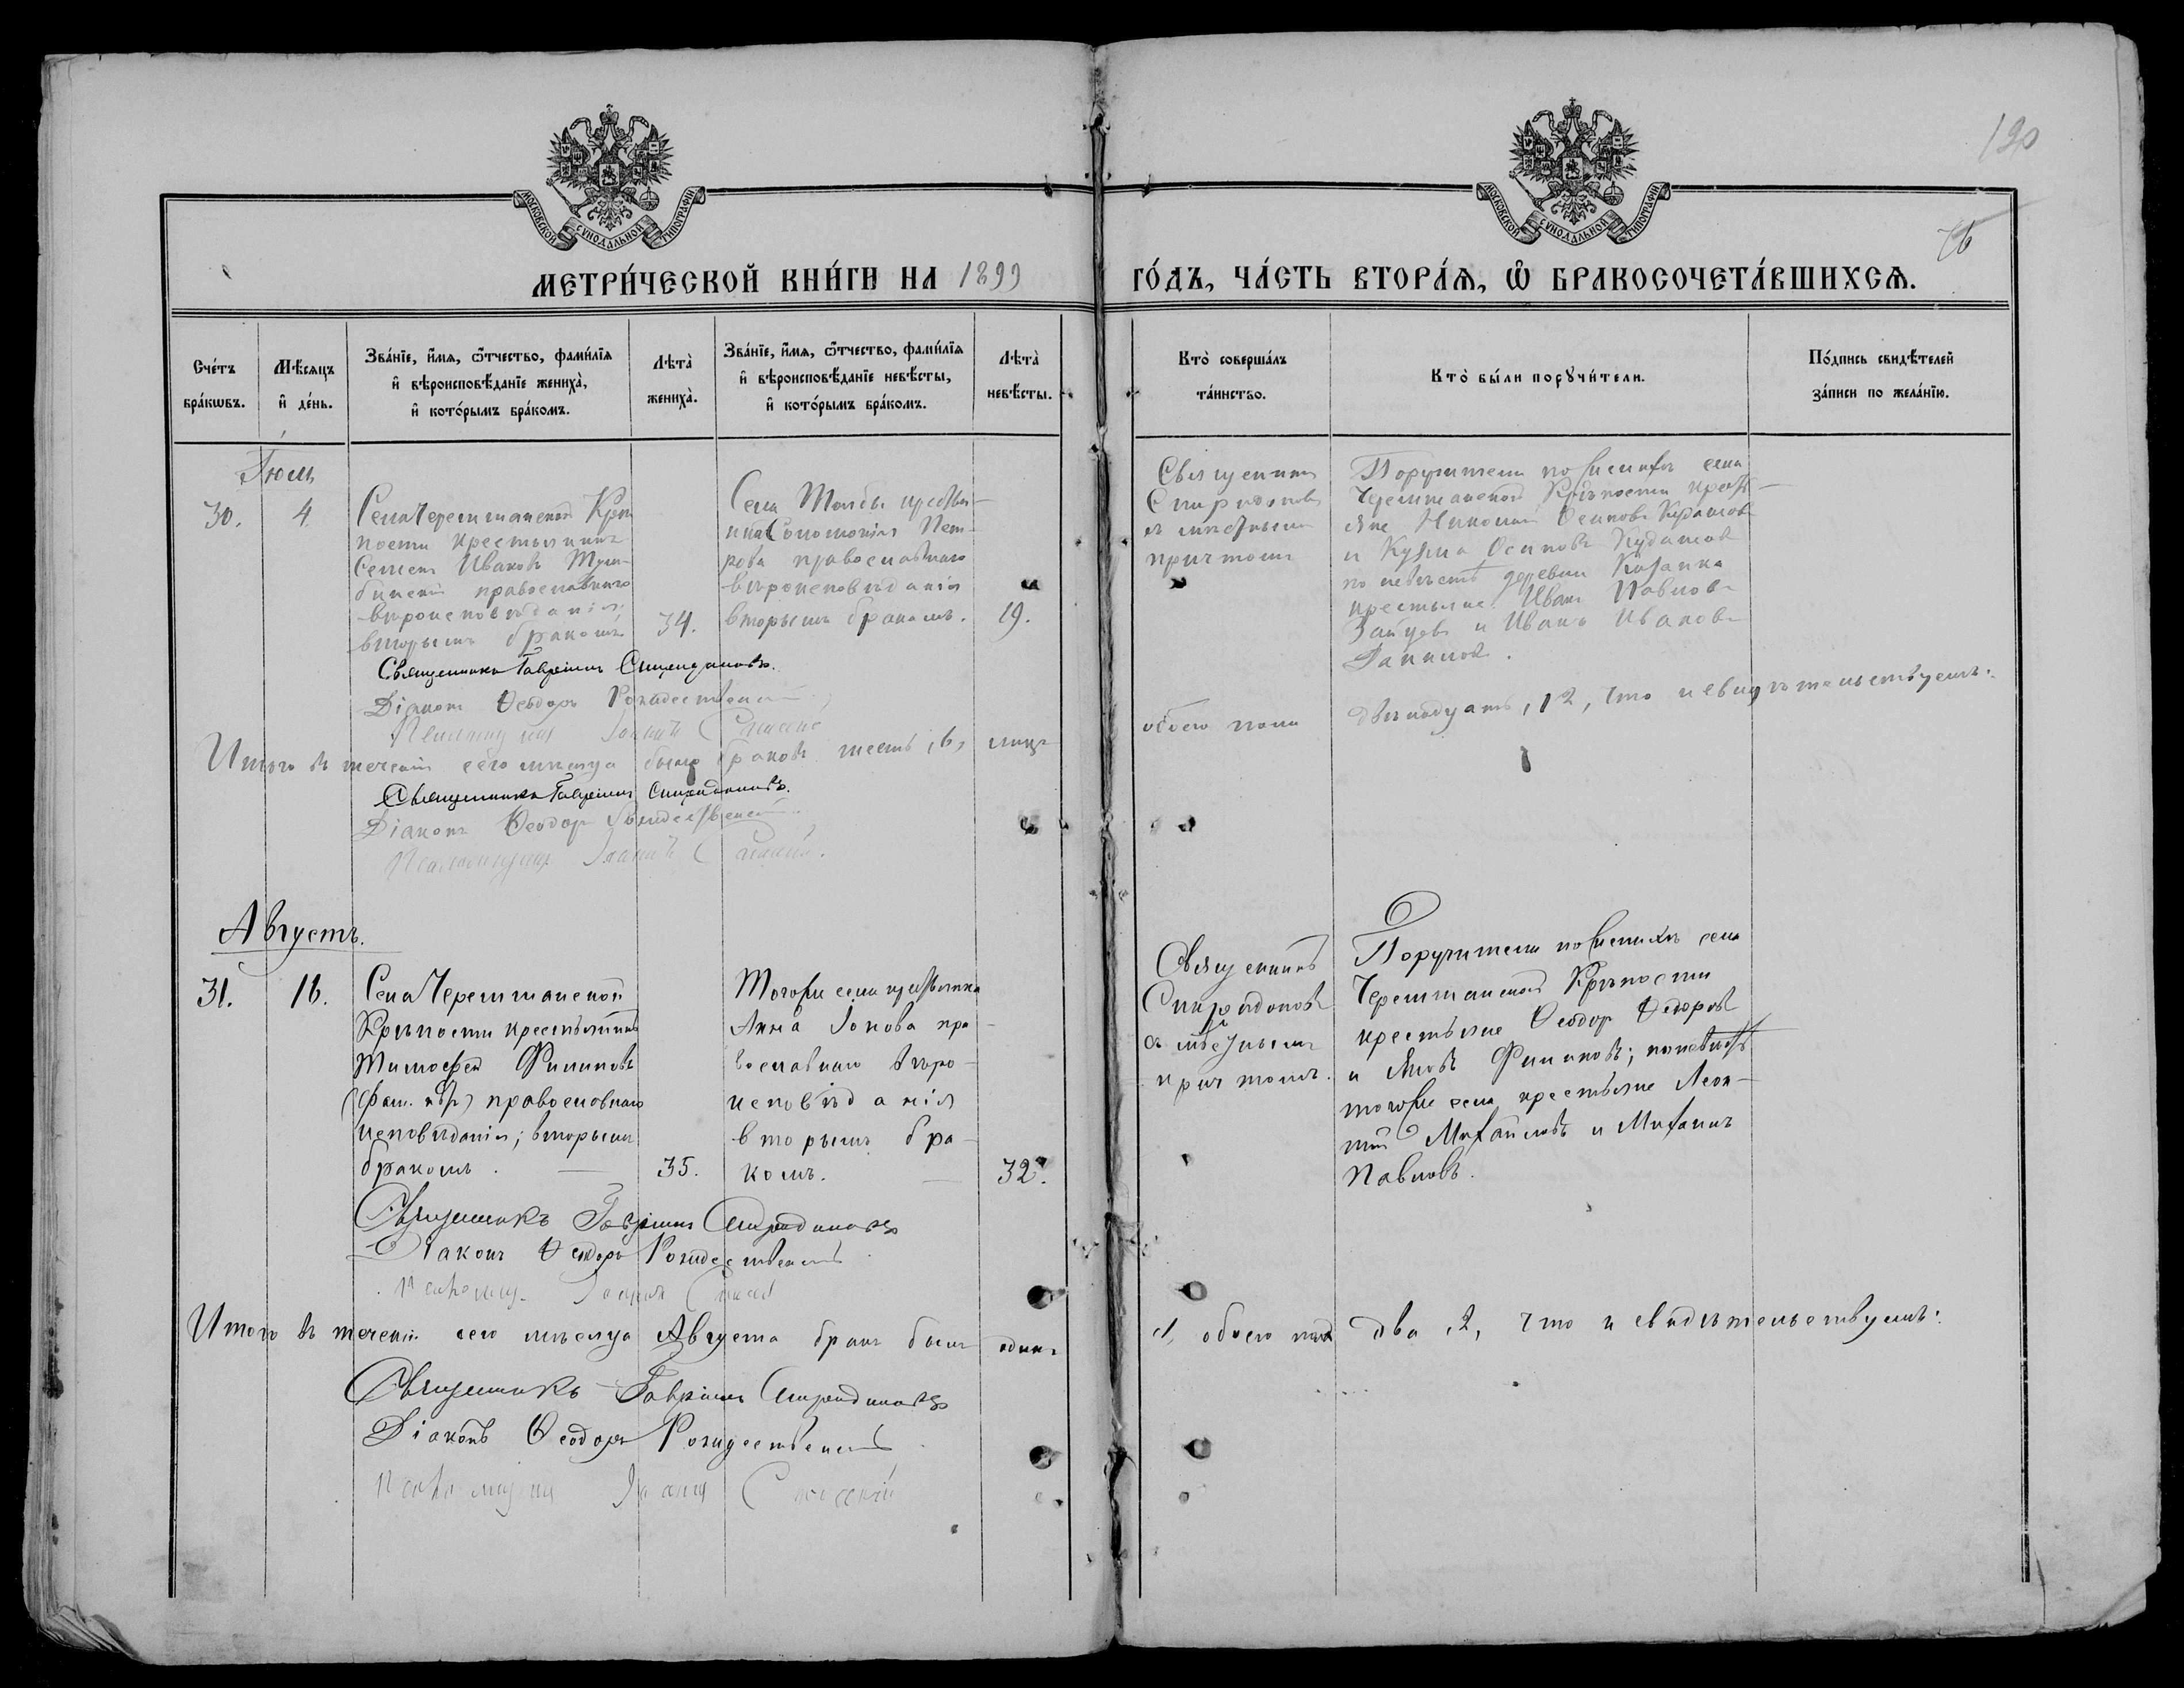 120
76
МОСКОВСКОЙ СУНОДАЛЬНОЙ ТИПОГРАФІИ
МОСКОВСКОЙ СУНОДАЛЬНОЙ ТИПОГРАФІИ
МЕТРИ́ЧЕСКОЙ КНИ́ГИ НА 1899
ГО́ДЪ, ЧА́СТЬ ВТОРА́Ѧ, Ѽ БРАКОСОЧЕТА́ВШИХСѦ.
Сче́тъ
бра́кѡвъ.
Мѣ́сяцъ
и҆ де́нь.
Зва́нїе, и҆́мя, ѻ҆́тчество, фами́лїя
и҆ вѣроисповѣ́данїе жениха̀,
и҆ кото́рымъ бра́комъ.
Лѣта̀
жениха̀.
Зва́нїе, и҆́мя, ѻ҆́тчество, фами́лїя
и҆ вѣроисповѣ́данїе невѣ́сты,
и҆ кото́рымъ бра́комъ.
Лѣта̀
невѣ́сты.
Кто̀ соверша́лъ
та́инство.
Кто̀ бы́ли порꙋчи́тели.
По́дпись свидѣ́телей
за́писи по жела́нїю.
Іюль
30.
4.
Села Черемшанской Крѣ-
пости крестьянинъ
Семенъ Ивановъ
православнаго
вѣроисповѣданія;
вторымъ бракомъ
34.
Села
Соломонія Пет-
рова православнаго
вѣроисповѣданія
вторымъ бракомъ.
19.
Священникъ
Спиридоновъ
съ мѣстнымъ
причтомъ
Поручители по женихѣ села
Черемшанской Крѣпости крест-
яне Николай Осиповъ
и Кузма Осиповъ
по невѣстѣ деревни
крестьяне Иванъ Павловъ
Зайцевъ и Иванъ Ивановъ
Даниловъ.
Священникъ Гавріилъ Спиридоновъ.
Діаконъ Ѳеодоръ Рождественскій
Псаломщикъ
Итого въ теченіи сего мѣсяца было браковъ шесть, 6, лицъ
обоего пола двѣнадцать, 12, что и свидѣтельствуемъ:
Священникъ Гавріилъ Спиридоновъ.
Діаконъ Ѳеодоръ Рождественскій
Псаломщикъ
Августъ.
31.
16.
Села Черемшанской
Крѣпости крестьянинъ
Тимофей Филиповъ
(фам. нѣтъ) православнаго
исповѣданія; вторымъ
бракомъ.
35.
Тогоже села крестьянка
Анна Іонова пра-
вославнаго вѣро-
исповѣданія
вторымъ бра-
комъ.
32.
Священникъ
Спиридоновъ
съ мѣстнымъ
причтомъ.
Поручители по женихѣ села
Черемшанской Крѣпости
крестьяне Ѳеодоръ Ѳедоровъ
и Яковъ Филиповъ; по невѣстѣ
тогоже села крестьяне Леон-
тій Михайловъ и Михаилъ
Павловъ.
Священникъ Гавріилъ Спиридоновъ
Діаконъ Ѳеодоръ Рождественскій
Итого въ теченіи сего мѣсяца Августа бракъ былъ одинъ
1, обоего пола два, 2, что и свидѣтельствуемъ:
Священникъ Гавріилъ Спиридоновъ
Діаконъ Ѳеодоръ Рождественскій
Псаломщикъ